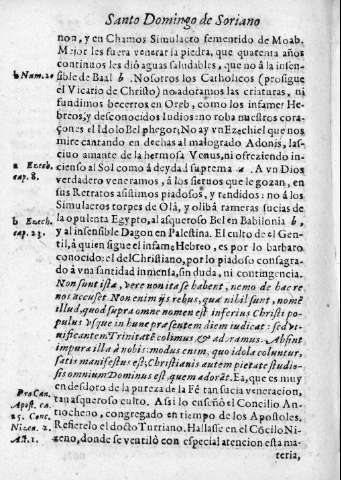 Santo Domingo de Soriano
non, y en Chamos Simulacro fementido de Moab.
Mejor les fuera venerar la piedra, que quarenta años
continuos les diò aguas saludables, que no à la insen-
b Num. 20
sible de Baal b. Nosotros los Catholicos (prosigue
el Vicario de Christo) no adoramos las criaturas, ni
fundimos becerros en Oreb, como los infames He-
breos, y desconocidos Iudios: no roba nuestros cora-
çones el Idolo Belphegor; No ay vn Ezechiel que nos
mire cantando en dechas al malogrado Adonis, las-
ciuo amante de la hermosa Venus, ni ofreziendo in-
a Ezech.
cap. 8.
cienso al Sol como à deydad suprema a. A vn Dios
verdadero veneramos, à los sieruos que le gozan, en
sus Retratos assistimos piadosos, y rendidos: no à los
Simulacros torpes de Olà, y olibà rameras sucias de
b Ezech.
cap. 23.
la opulenta Egypto, al asqueroso Bel en Babilonia b,
y al insensible Dagon en Palestina. El culto de el Gen-
til, à quien sigue el infame Hebreo, es por lo barbaro
conocido: el del Christiano, por lo piadoso consagra-
do à vna santidad inmensa, sin duda, ni contingencia.
Non sunt ista, vere non ita se habent, nemo de hac re
nos accuset. Non enim ijs rebus, quæ nihil sunt, nomẽ
illud, quod supra omne nomen est inferius Christi po-
pulus vsque in hunc præsentem diem iudicat: sed vi-
uificantem Trinitatẽ colimus & adoramus. Absint
impura illa à nobis: modus enim, quo idola coluntur,
satis manifestus est; Christianis autem pietate studio-
sis omnium Dominus est, quem adorẽt. Ea, que es muy
en desdoro de la pureza de la Fè tan sucia veneracion,
Pro Can.
Apost. ca.
25. Conc.
Nizen. 2.
Act. 1.
tan asqueroso culto. Assi lo enseñò el Concilio An-
tiocheno, congregado en tiempo de los Apostoles.
Refierelo el docto Turriano. Hallasse en el Cõcilo Ni-
zeno, donde se ventilò con especial atencion esta ma-
teria,